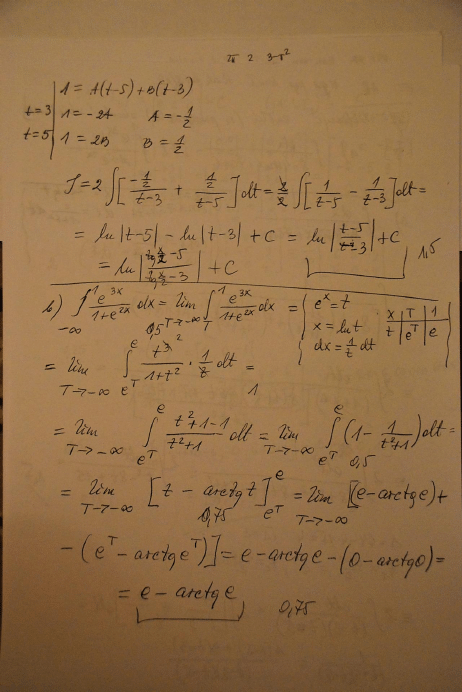 1 = A(t-5) + B(t-3)
t=3 | 1 = -2A   A = -1/2
t=5 | 1 = 2B   B = 1/2
J = 2 ∫ [ (-1/2)/(t-3) + (1/2)/(t-5) ] dt = 2/2 ∫ [ 1/(t-5) - 1/(t-3) ] dt =
= ln|t-5| - ln|t-3| + C = ln|(t-5)/(t-3)| + C   1,5
= ln| -5 / -3 | + C
b) ∫_{-∞}^{1} e^{3x}/(1+e^{2x}) dx = lim_{T→-∞} ∫_{T}^{1} e^{3x}/(1+e^{2x}) dx = { e^x = t   x | T | 1
0,5   x = ln t   t | e^T | e
dx = 1/t dt }
= lim_{T→-∞} ∫_{e^T}^{e} t^2/(1+t^2) · 1/t dt =
1
= lim_{T→-∞} ∫_{e^T}^{e} (t^2+1-1)/(t^2+1) dt = lim_{T→-∞} ∫_{e^T}^{e} (1 - 1/(t^2+1)) dt =
0,5
= lim_{T→-∞} [ t - arctg t ]_{e^T}^{e} = lim_{T→-∞} [(e - arctg e) +
0,75
- (e^T - arctg e^T)] = e - arctg e - (0 - arctg 0) =
= e - arctg e   0,75